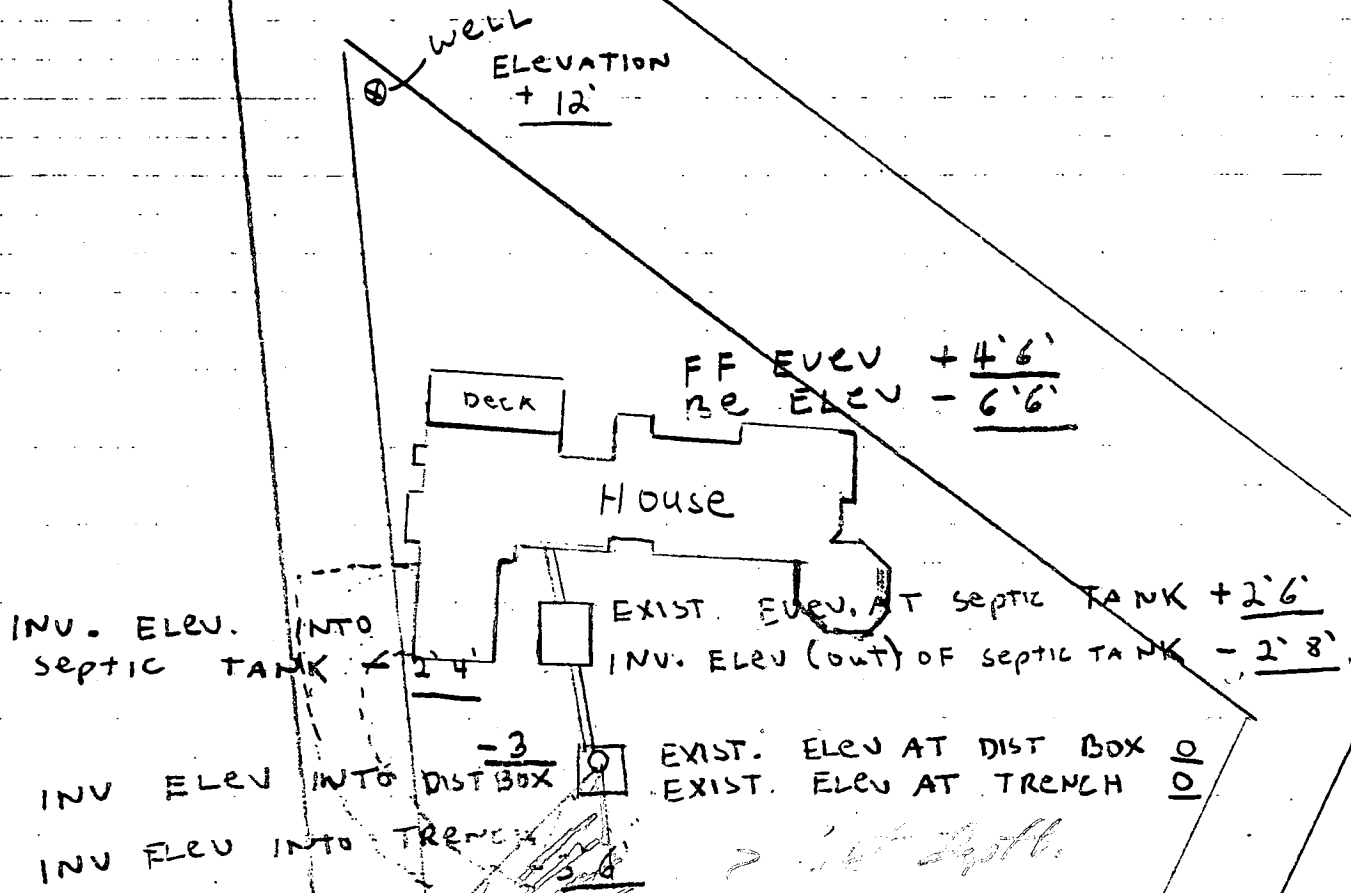 WELL
ELEVATION
+ 12'
FF EVEV + 4'6'
BE ELEV - 6'6'
DECK
HOUSE
EXIST. EVEV. AT SEPTIC TANK + 2'6'
INV. ELEV. INTO
SEPTIC TANK - 2'4'
INV. ELEV (OUT) OF SEPTIC TANK - 2'8'
INV ELEV INTO DIST BOX - 3
EXIST. ELEV AT DIST BOX 0
EXIST. ELEV AT TRENCH 0
INV ELEV INTO TRENCH